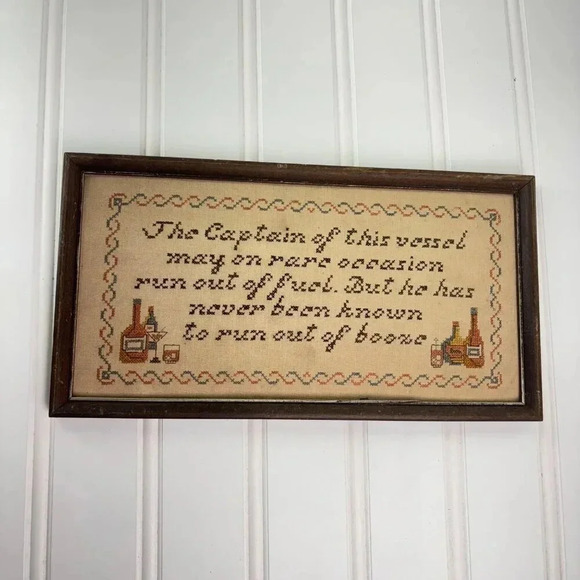 The Captain of this vessel
may on rare occasion
run out of fuel. But he has
never been known
to run out of booze